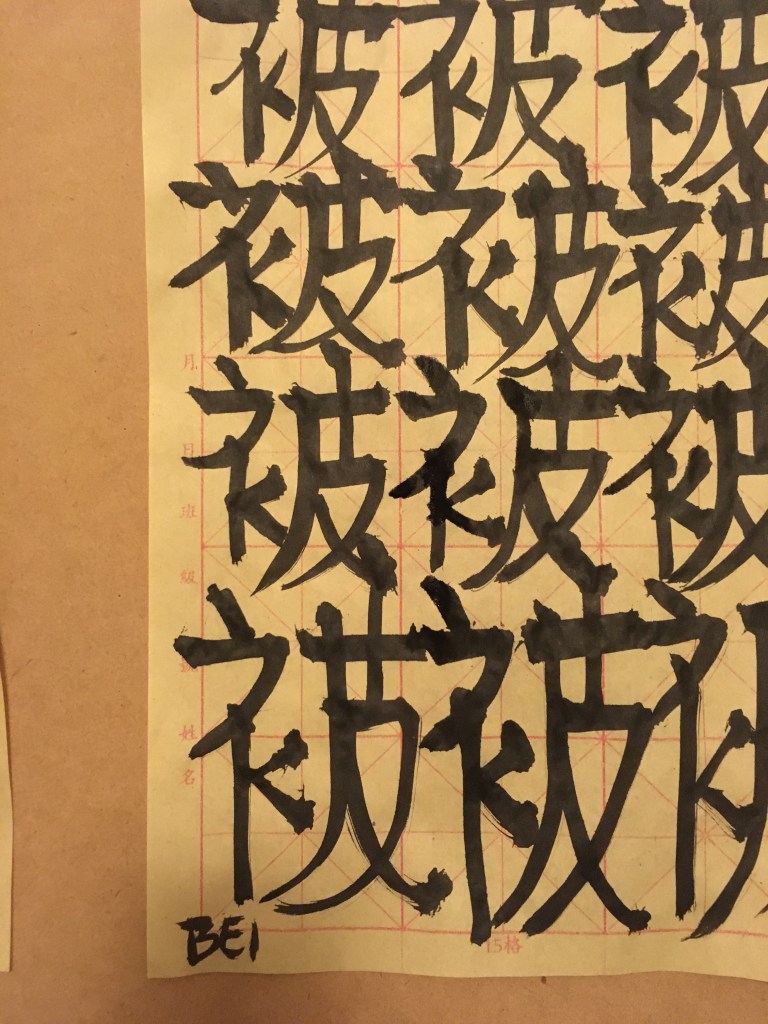 被被被
被被被
被被被
被被被
月日班級
姓名
BEI
15格